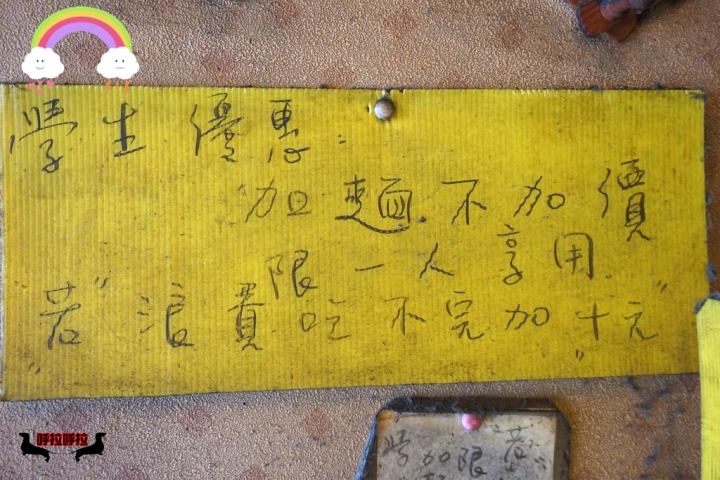 學生優惠:
加麵不加價
限一人享用.
"若"浪費吃不完加"十元"
呼拉呼拉
學加限"若"